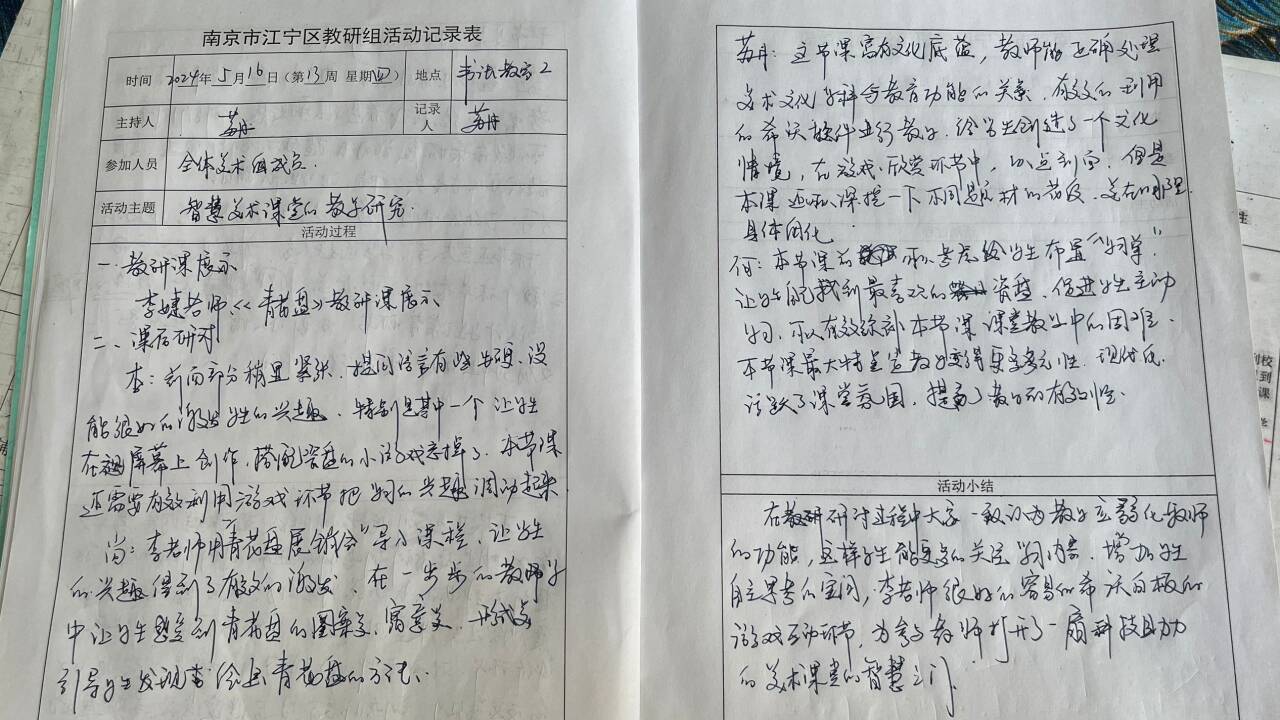 南京市江宁区教研组活动记录表
时间 2024年5月16日（第13周 星期四） 地点 书法教室2
主持人 苏丹 记录人 苏丹
参加人员 全体美术组成员
活动主题 智慧美术课堂的教学研究
活动过程
一、教研课展示
李婕老师《青花盘》教研课展示
二、课后研讨
本：前面部分稍显紧张，提问语言有些生硬，没
能很好的激发学生的兴趣，特别是其中一个让学生
在屏幕上创作，搭配瓷盘的小游戏忘掉了，本节课
还需要有效利用游戏环节把学习的兴趣调动起来
尚：李老师用青花盘展销会"导入课程，让学生
的兴趣得到了有效的激发，在一步步的教师
中让学生 到青花盘的图案美、寓意美、形式美
引导学生发现 绘画青花盘的方法.
苏丹：这节课富有文化底蕴，教师能正确处理
美术文化学科与教育功能的关系，有效的利用
的希沃软件进行教学，给学生创造了一个文化
情境，在游戏、欣赏环节中，以点到面，但是
本课还可以深挖一下不同题材的花纹，美在哪里
具体细化
本节课前 可以考虑给学生布置"
让学生自己找到最喜欢的 资盘，促进学生主动
学习，可以有效弥补本节课课堂教学中的困难.
本节课最大特点是 变得更多元性、现代化
活跃了课堂氛围，提高了教学的有效性.
活动小结
在教研研讨过程中大家一致认为教学应弱化教师
的功能，这样学生能更多的关注学习内容，增加学生
自主思考的空间，李老师很好的 希沃白板的
游戏互动环节，为参与教师打开了一扇科技助力
的美术课堂的智慧之门.